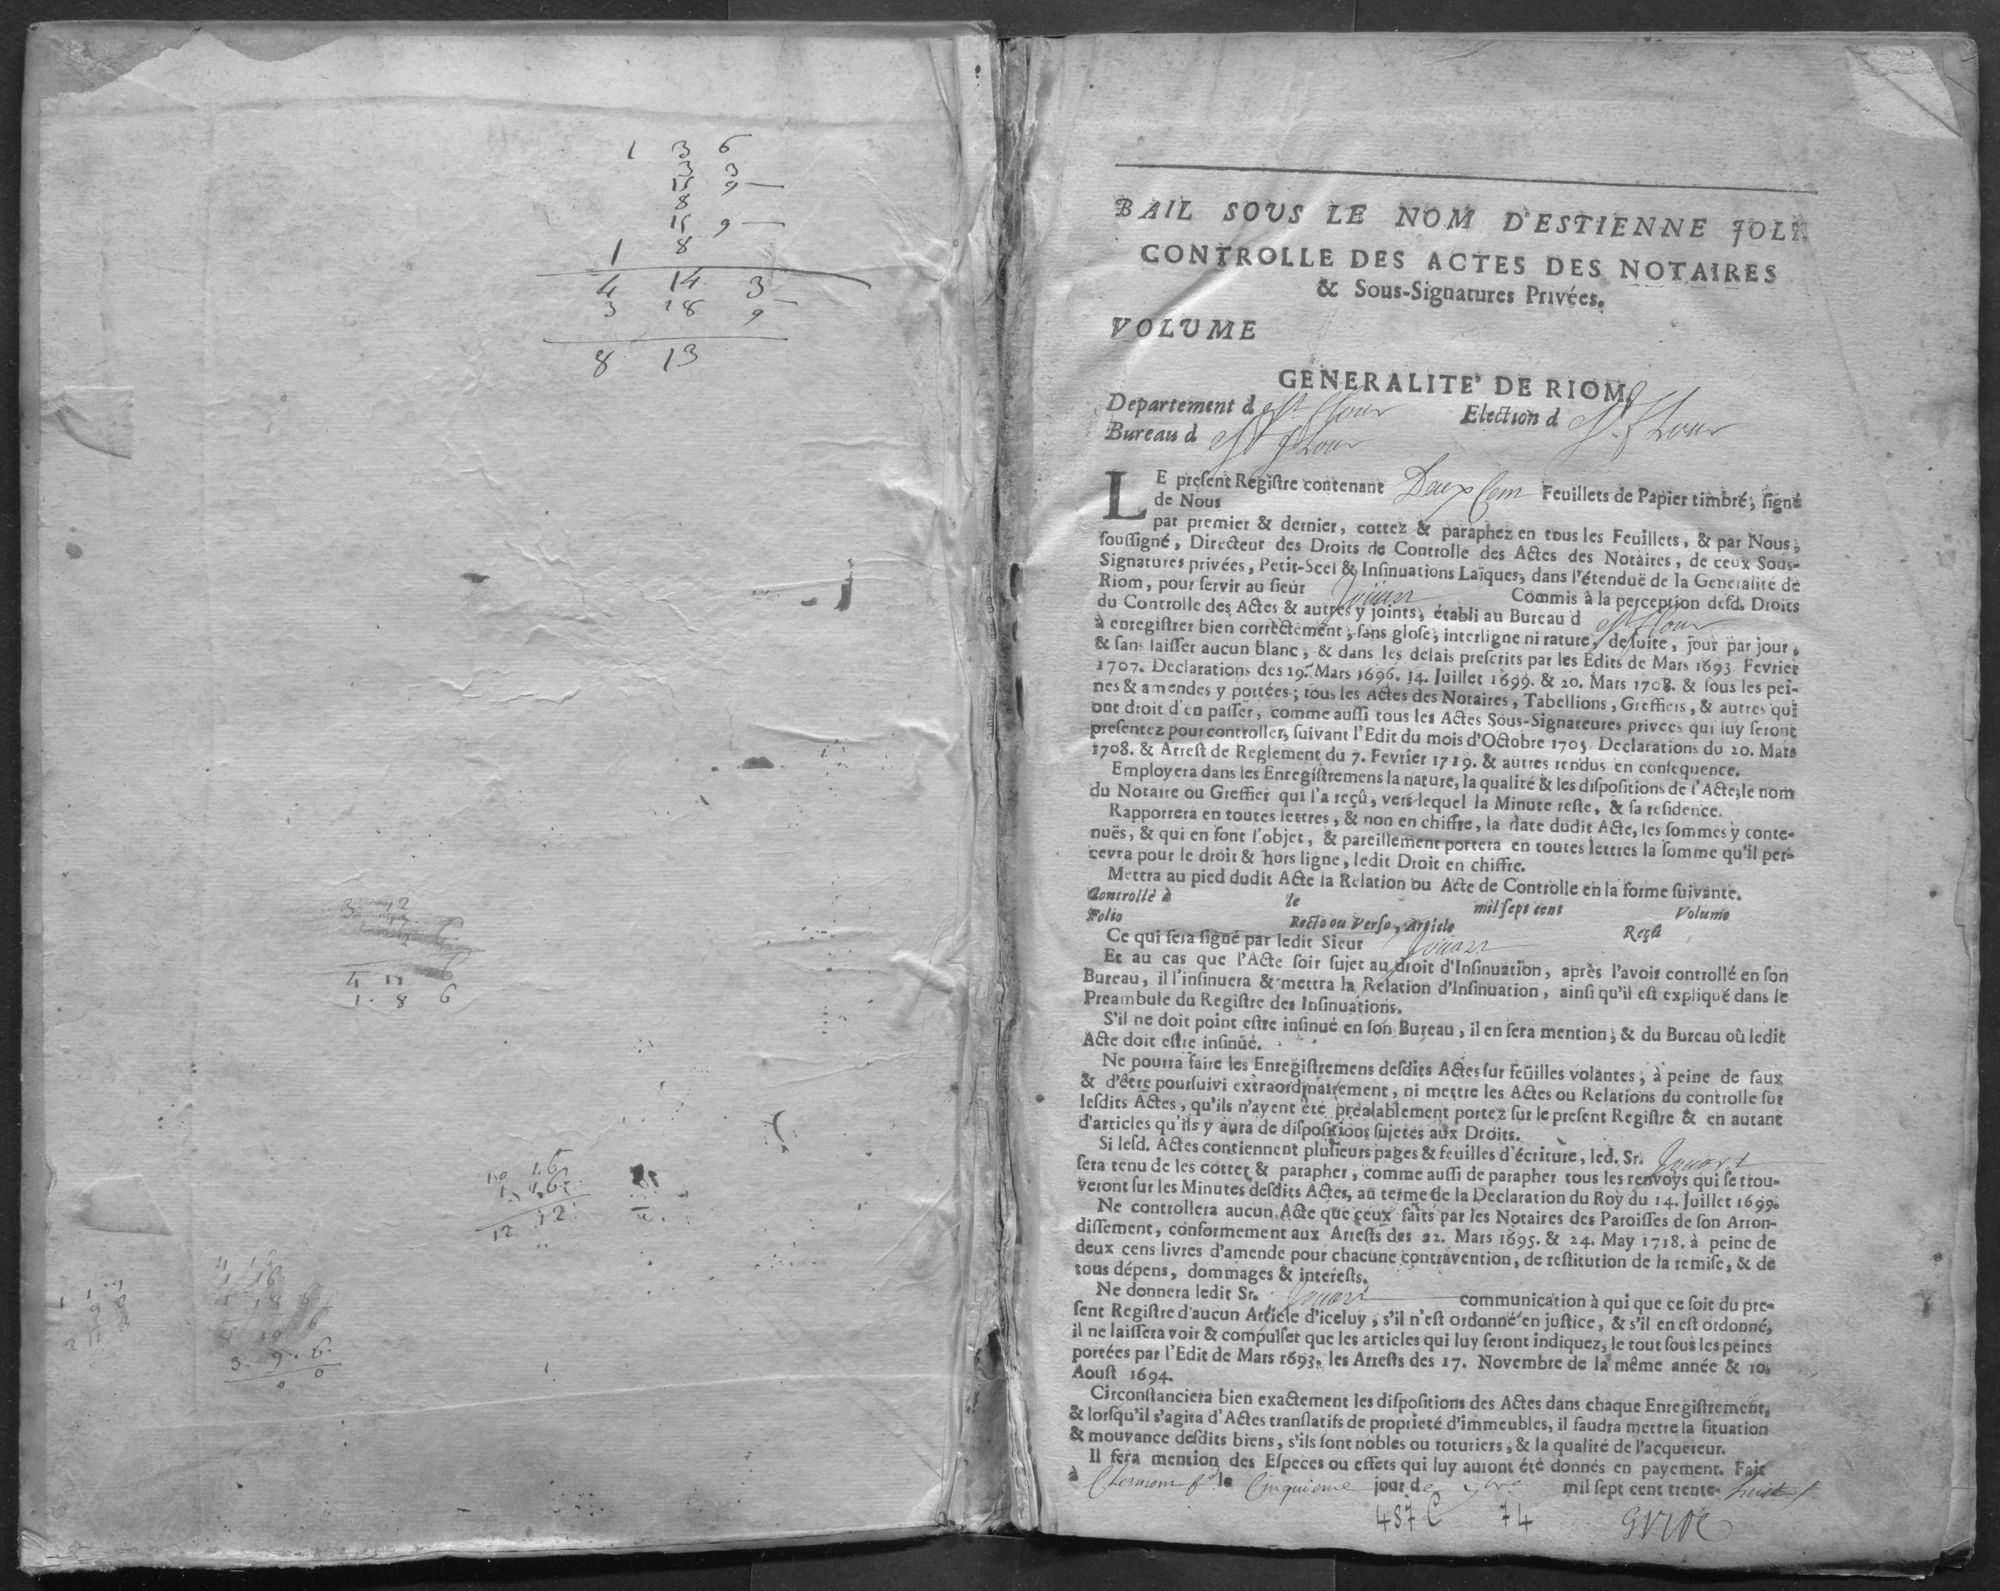 1 3 6
3 3
15 9 —
8
15 9 —
1 8
4 14 3
3 18 9 —
8 13
3 12
6
4 11 6
1 . 8 6
10 16
1 . 16
12 12
4 1
1 16
1 18 6
3 . 9 . 6
0 0
BAIL SOUS LE NOM D'ESTIENNE JOLY.
CONTROLLE DES ACTES DES NOTAIRES
& Sous-Signatures Privées.
VOLUME
GENERALITE' DE RIOM,
Departement de St flour Election d St flour
Bureau d St flour
LE present Registre contenant Deux Cem Feuillets de Papier timbré; signé
de Nous
par premier & dernier, cottez & paraphez en tous les Feuillets, & par Nous,
soussigné, Directeur des Droits de Controlle des Actes des Notaires, de ceux Sous-
Signatures privées, Petit-Scel & Insinuations Laïques, dans l'étenduë de la Generalité de
Riom, pour servir au sieur Jouart Commis à la perception desd. Droits
du Controlle des Actes & autres y joints, établi au Bureau d St flour
à enregistrer bien correctement, sans glose, interligne ni rature, de suite, jour par jour,
& sans laisser aucun blanc, & dans les délais prescrits par les Edits de Mars 1693 Fevrier
1707. Declarations des 19. Mars 1696. 14. Juillet 1699. & 20. Mars 1708. & sous les pei-
nes & amendes y portées; tous les Actes des Notaires, Tabellions, Greffiers, & autres qui
ont droit d'en passer, comme aussi tous les Actes Sous-Signateures privées qui luy seront
presentez pour controller, suivant l'Edit du mois d'Octobre 1705 Declarations du 20. Mars
1708. & Arrest de Reglement du 7. Fevrier 1719. & autres rendus en consequence.
Employera dans les Enregistremens la nature, la qualité & les dispositions de l'Acte, le nom
du Notaire ou Greffier qui l'a reçû, vers lequel la Minute reste, & sa residence.
Rapportera en toutes lettres, & non en chiffre, la date dudit Acte, les sommes y conte-
nuës, & qui en font l'objet, & pareillement portera en toutes lettres la somme qu'il per-
cevra pour le droit & hors ligne, ledit Droit en chiffre.
Mettra au pied dudit Acte la Relation ou Acte de Controlle en la forme suivante.
Controllé à le mil sept cent Volume
Folio Recto ou Verso, Article Reçû
Ce qui sera signé par ledit Sieur Jouart
Et au cas que l'Acte soit sujet au droit d'Insinuation, après l'avoir controllé en son
Bureau, il l'insinuera & mettra la Relation d'Insinuation, ainsi qu'il est expliqué dans le
Preambule du Registre des Insinuations.
S'il ne doit point estre insinué en son Bureau, il en sera mention; & du Bureau où ledit
Acte doit estre insinüé.
Ne pourra faire les Enregistremens desdits Actes sur feüilles volantes, à peine de faux
& d'être poursuivi extraordinairement, ni mettre les Actes ou Relations du controlle sur
lesdits Actes, qu'ils n'ayent été préalablement portez sur le present Registre & en autant
d'articles qu'ils y aura de dispositions sujetes aux Droits.
Si lesd. Actes contiennent plusieurs pages & feuilles d'écriture, led. Sr. Jouart
sera tenu de les cotter & parapher, comme aussi de parapher tous les renvoys qui se trou-
veront sur les Minutes desdits Actes, au terme de la Declaration du Roy du 14. Juillet 1699.
Ne controllera aucun Acte que ceux faits par les Notaires des Paroisses de son Arron-
dissement, conformement aux Arrests des 22. Mars 1695. & 24. May 1718. à peine de
deux cens livres d'amende pour chacune contravention, de restitution de la remise, & de
tous dépens, dommages & interests.
Ne donnera ledit Sr. Jouart communication à qui que ce soit du pre-
sent Registre d'aucun Article d'iceluy, s'il n'est ordonné en justice, & s'il en est ordonné,
il ne laissera voir & compulser que les articles qui luy seront indiquez, le tout sous les peines
portées par l'Edit de Mars 1693. les Arrests des 17. Novembre de la même année & 10.
Aoust 1694.
Circonstanciera bien exactement les dispositions des Actes dans chaque Enregistrement,
& lorsqu'il s'agira d'Actes translatifs de proprieté d'immeubles, il faudra mettre la situation
& mouvance desdits biens, s'ils sont nobles ou roturiers, & la qualité de l'acquereur.
Il fera mention des Especes ou effets qui luy auront été donnés en payement. Fait
à Clermont fd le Cinquieme jour de mil sept cent trente huit
487 C 74